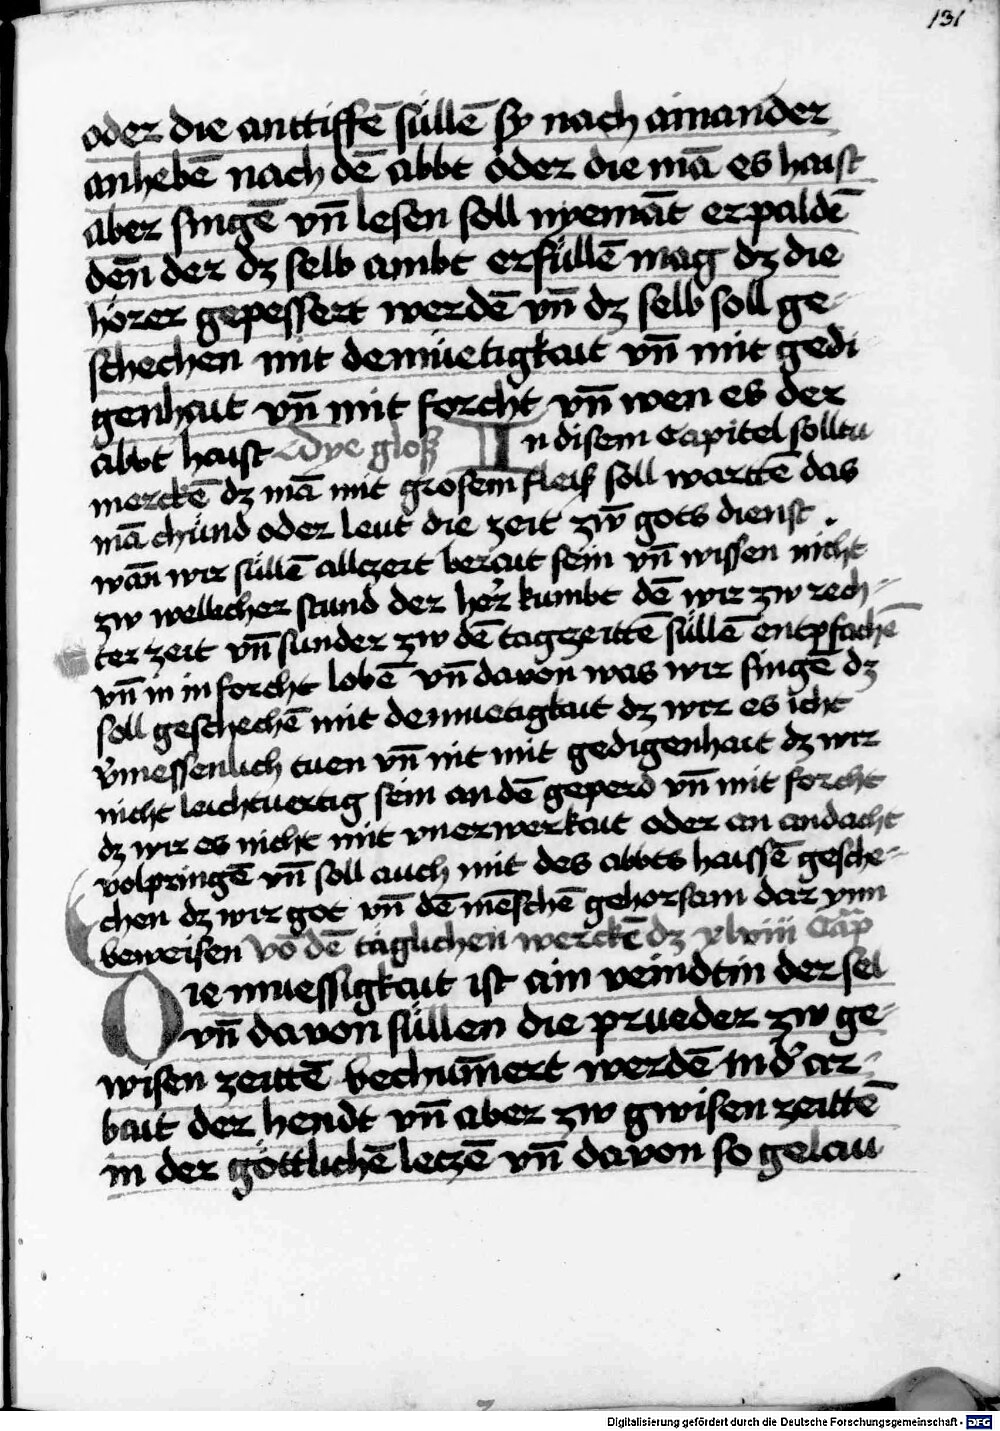 131
oder die anttiffē süllē sy nach ainander
anhebē nach dē abbt oder die mā es haist
aber singē vn̄ lesen soll nyemāt erpaldē
den̄ der dz selb ambt erfüllē mag dz die
hörer gepessert werdē vn̄ dz selb soll ge-
schechen mit demüetigkait vn̄ mit gedi
genhait vn̄ mit forcht vn̄ wen es der
abbt haist Dye gloß In disem Capitel solltu
merckē dz mā mit grosem fleis soll warttē das
mā chünd oder leut die zeit zw̄ gots dienst .
wān wir süllē allczeit berait sein vn̄ wissen nicht
zw wellicher stund der her̄ kumbt dē wir zw rech-
ter zeit vn̄ sunder zw dē tagzeittē süllē entpfachē
vn̄ in in forcht lobē vn̄ davon was wir singē dz
soll geschechē mit demuetigkait dz wir es icht
v̄messenlich tuen vn̄ nit mit gedigenhait dz wir
nicht leichtuertig sein an dē geperd vn̄ mit forcht
dz wir es nicht mit vnerwerkait oder an andacht
volpringē vn̄ soll auch mit des abbts haissē gesche-
chen dz wir got vn̄ dē mēschē gehorsam dar ynn
beweisen Vō dē täglichen werckē dz xlviii Cap̄
Die muessigkait ist ain veindtin der sel
vn̄ davon süllen die prueder zw ge-
wisen zeittē bechūmert werdē in d͛ ar-
bait der hendt vn̄ aber zw gwisen zeittē
in der göttlichē leczē vn̄ davon so gelau
Digitalisierung gefördert durch die Deutsche Forschungsgemeinschaft - DFG